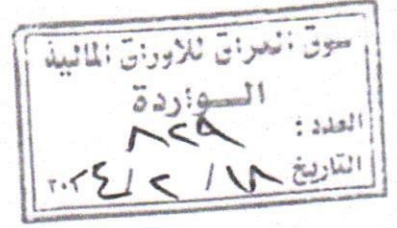 سوق العراق للاوراق المالية
الـــواردة
العدد : ٨٢٩
التاريخ ١٨ / ٢ / ٢٠٢٤